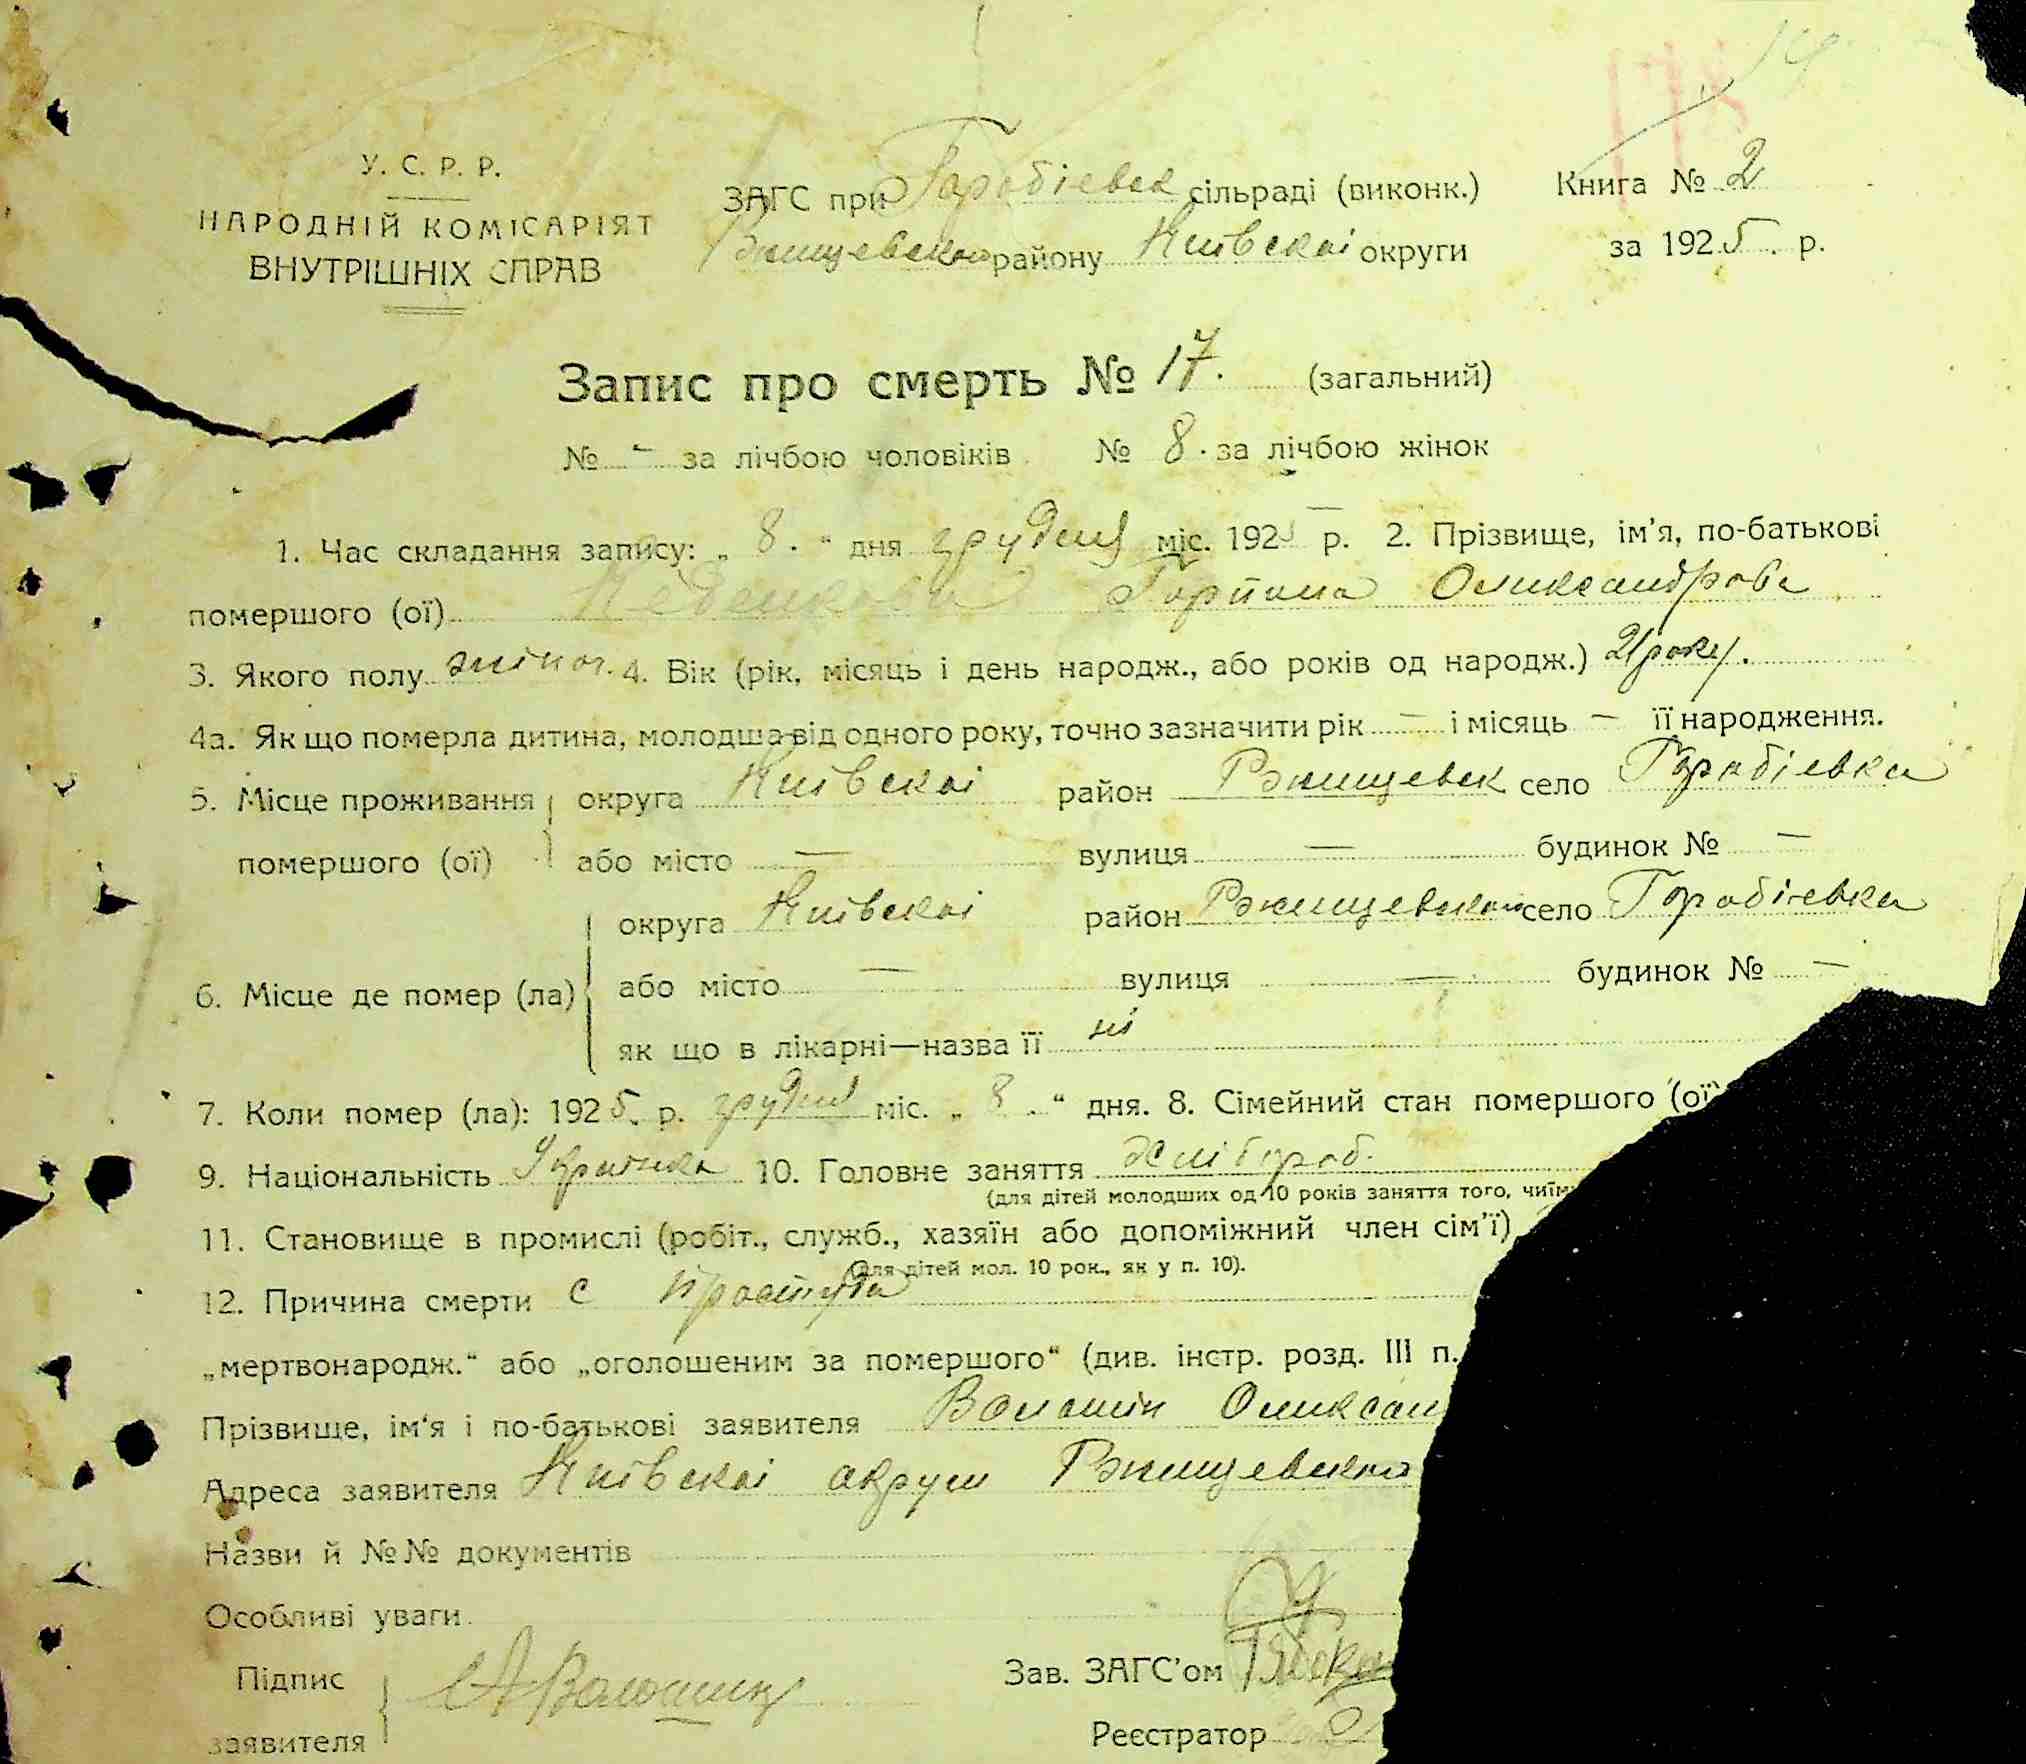 У. С. Р. Р.
НАРОДНІЙ КОМІСАРІЯТ
ВНУТРІШНІХ СПРАВ
ЗАГС при Горобієвск сільраді (виконк.)
Ржищевском району Київскої округи
Книга № 2
за 1925. р.
Запис про смерть № 17. (загальний)
№ - за лічбою чоловіків № 8. за лічбою жінок
1. Час складання запису: „ 8. “ дня грудня міс. 1925 р. 2. Прізвище, ім’я, по-батькові
помершого (ої) Горпина Олександрова
3. Якого полу жіноч. 4. Вік (рік, місяць і день народж., або років од народж.) 21 року.
4а. Як що померла дитина, молодша від одного року, точно зазначити рік — і місяць — її народження.
5. Місце проживання помершого (ої) округа Київскої район Ржищевск село Горобієвка
або місто — вулиця — будинок № —
6. Місце де помер (ла) округа Київскої район Ржищевском село Горобієвка
або місто — вулиця — будинок № —
як що в лікарні—назва її ні
7. Коли помер (ла): 1925. р. грудня міс. „ 8. “ дня. 8. Сімейний стан помершого (ої)
9. Національність Украінка 10. Головне заняття Хлібороб.
(для дітей молодших од 10 років заняття того, чиїм
11. Становище в промислі (робіт., служб., хазяїн або допоміжний член сім’ї)
(для дітей мол. 10 рок., як у п. 10).
12. Причина смерти с простуди
„мертвонародж.“ або „оголошеним за помершого“ (див. інстр. розд. III п.
Прізвище, ім‘я і по-батькові заявителя Волошин Олексан
Адреса заявителя Київскої округи Ржищевского
Назви й №№ документів
Особливі уваги
Підпис заявителя А Волошин
Зав. ЗАГС’ом
Реєстратор